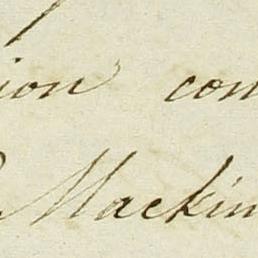 ion con
Mackin